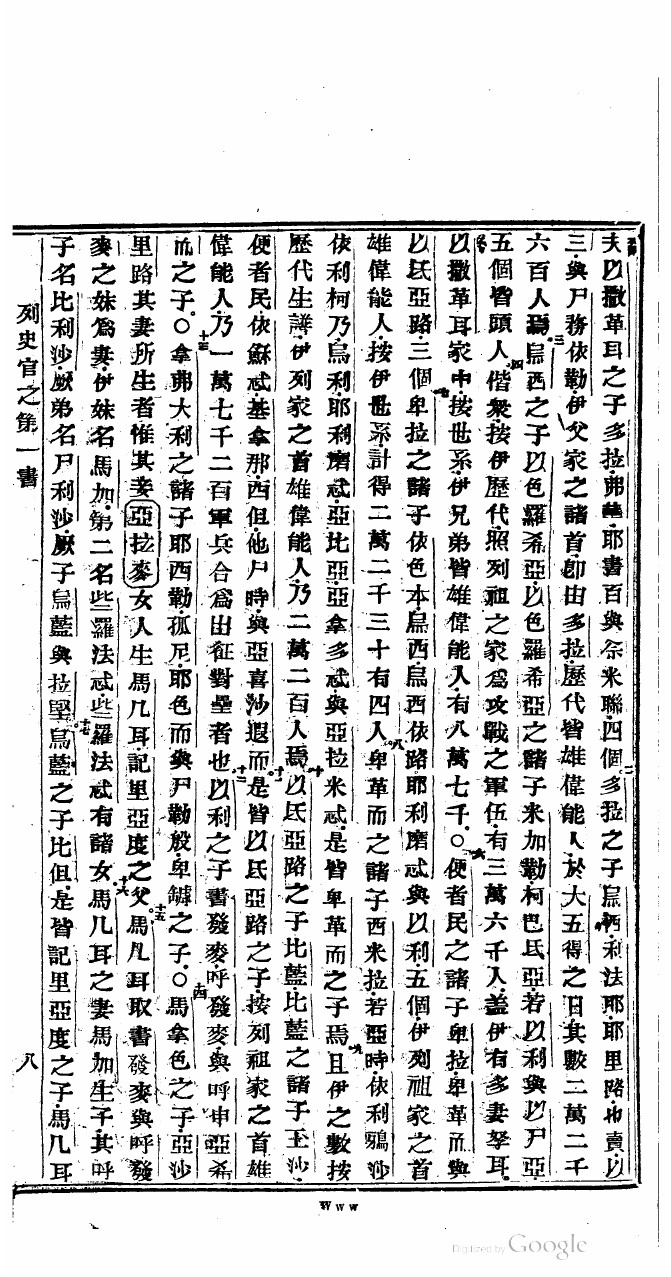 夫以撒革耳之子多拉弗耶書百與・米聯四個多拉之子烏西利法耶耶里路也賣以
三與尸務依勒伊父家之諸首卽由多拉歷代皆雄偉能人於大五得之日其數二萬二千
六百人焉三烏西之子以色羅希亞以色羅希亞之諸子米加勒柯巴氐亞若以利與以尸亞
五個皆頭人四偕衆按伊歷代照列祖之家爲攻戰之軍伍有三萬六千人蓋伊有多妻孥耳
五以撒革耳家中按世系伊兄弟皆雄偉能人有八萬七千〇六便者民之諸子卑拉卑革而與
以氐亞路三個七卑拉之諸子依色本烏西烏西依路耶利磨忒與以利五個伊列祖家之首
雄偉能人按伊世系計得二萬二千三十有四人八卑革而之諸子西米拉若亞時依利鴉沙
依利柯乃烏利耶利磨忒亞比亞亞拿多忒與亞拉米忒是皆卑革而之子焉九且伊之數按
歷代生譜伊列家之首雄偉能人乃二萬二百人焉十以氐亞路之子比藍比藍之諸子王沙
便者民依蘇忒基拿那西但他尸時與亞喜沙遐而十一是皆以氐亞路之子按列祖家之首雄
偉能人乃一萬七千二百軍兵合爲出征對壘者也十二以利之子書發麥呼發麥與呼申亞希
而之子〇十三拿弗大利之諸子耶西勒孤尼耶色而與尸勒般卑罅之子〇十四馬拿色之子亞沙
里路其妻所生者惟其妾亞拉麥女人生馬几耳記里亞度之父十五馬几耳取書發麥與呼發
麥之妹爲妻伊妹名馬加第二名些羅法忒些羅法忒有諸女十六馬几耳之妻馬加生子其呼
子名比利沙厥弟名尸利沙厥子烏藍與拉堅十七烏藍之子比但是皆記里亞度之子馬几耳
列史官之第一書　八
www
Digitized by Google